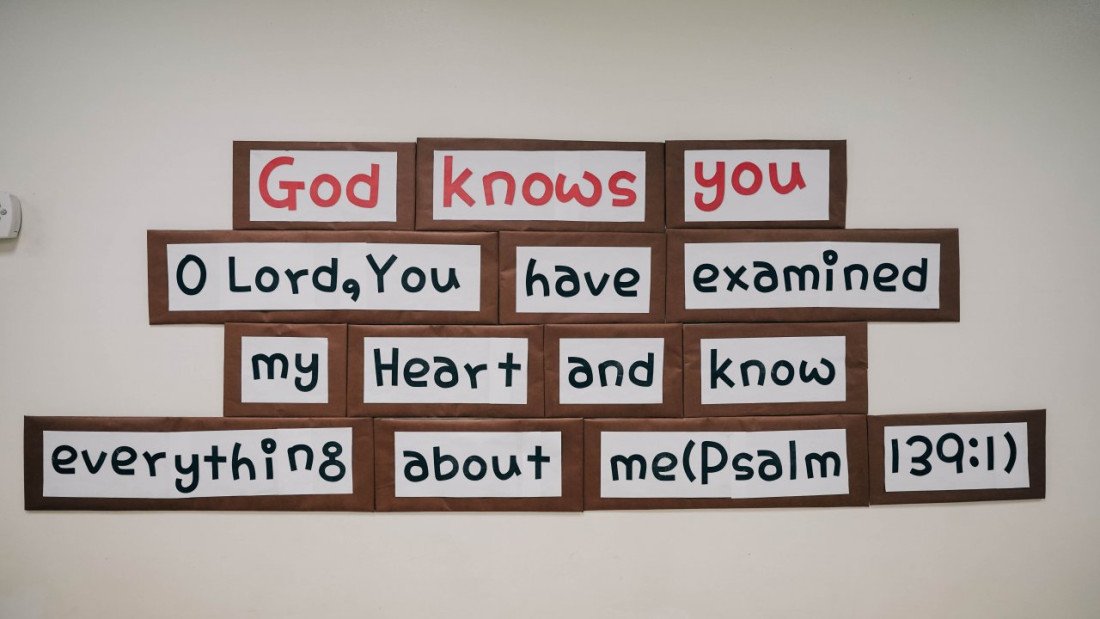 God knows you
O Lord,You have examined
my Heart and know
everything about me(Psalm 139:1)